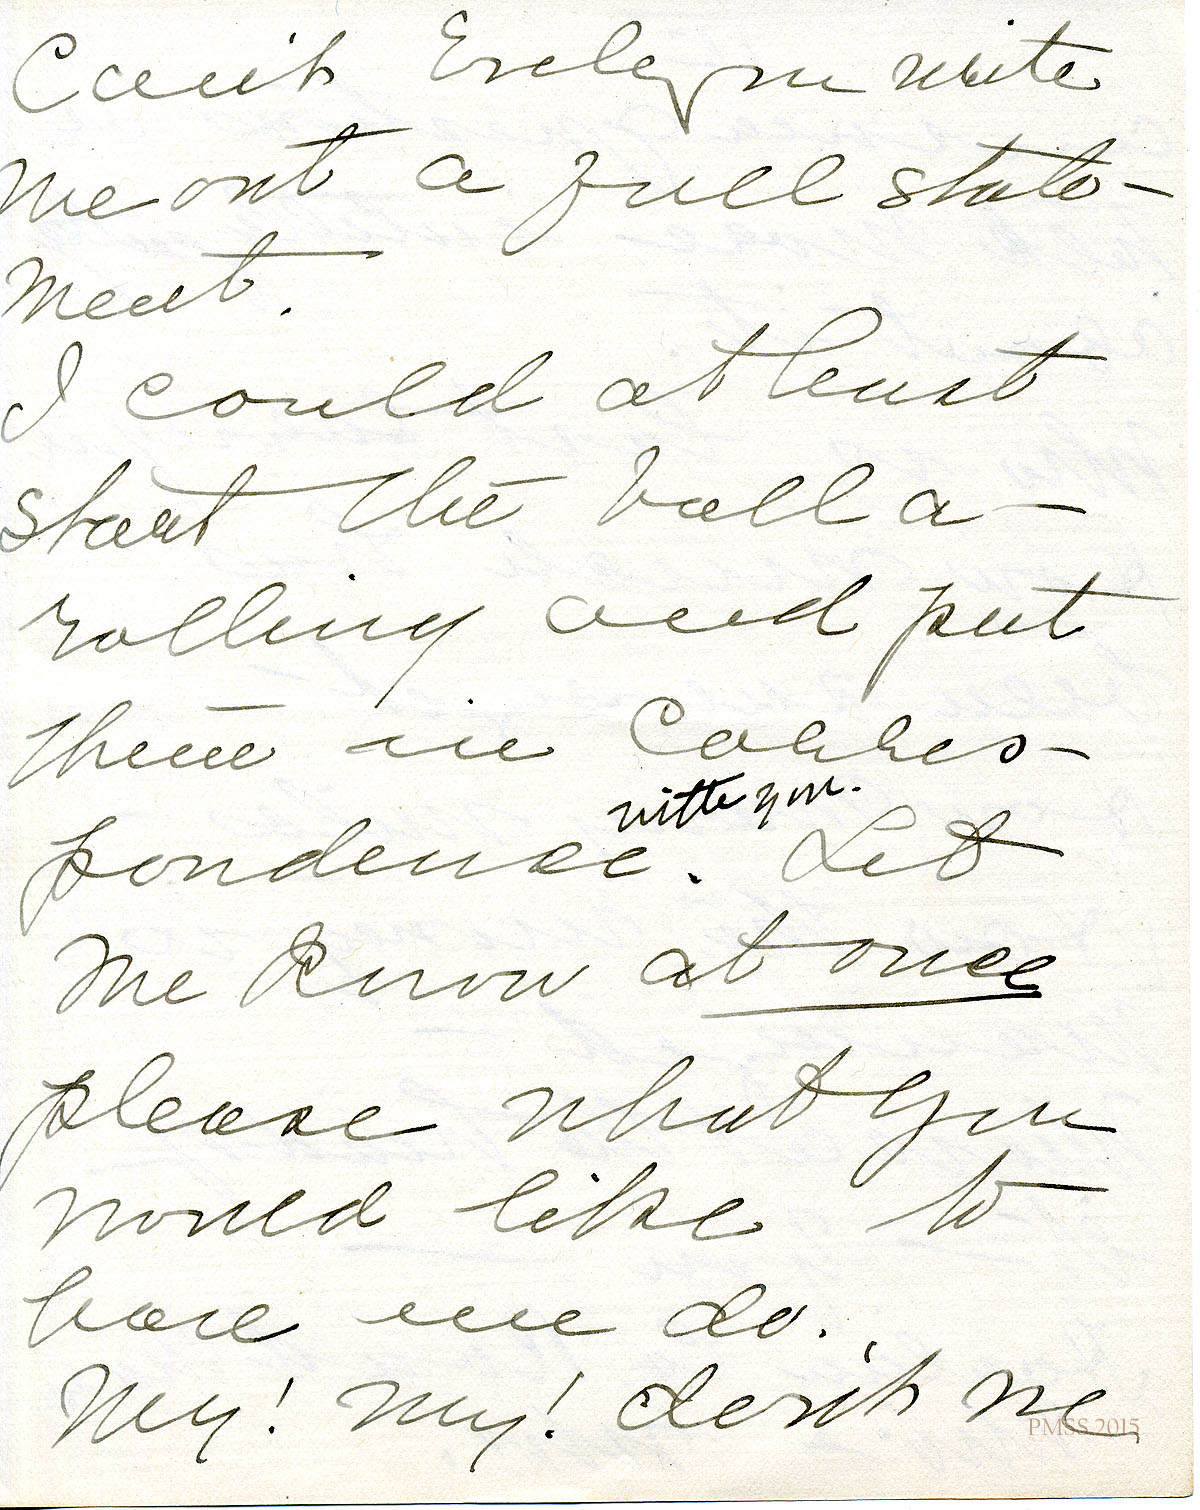 Can't Evelyn write
me out a full state-
ment.
I could at least
start the ball a-
rolling and put
them in Corres-
with you.
pondence. Let
me know at once
please what you
would like to
have me do.
My! My! don't we
PMSS 2015